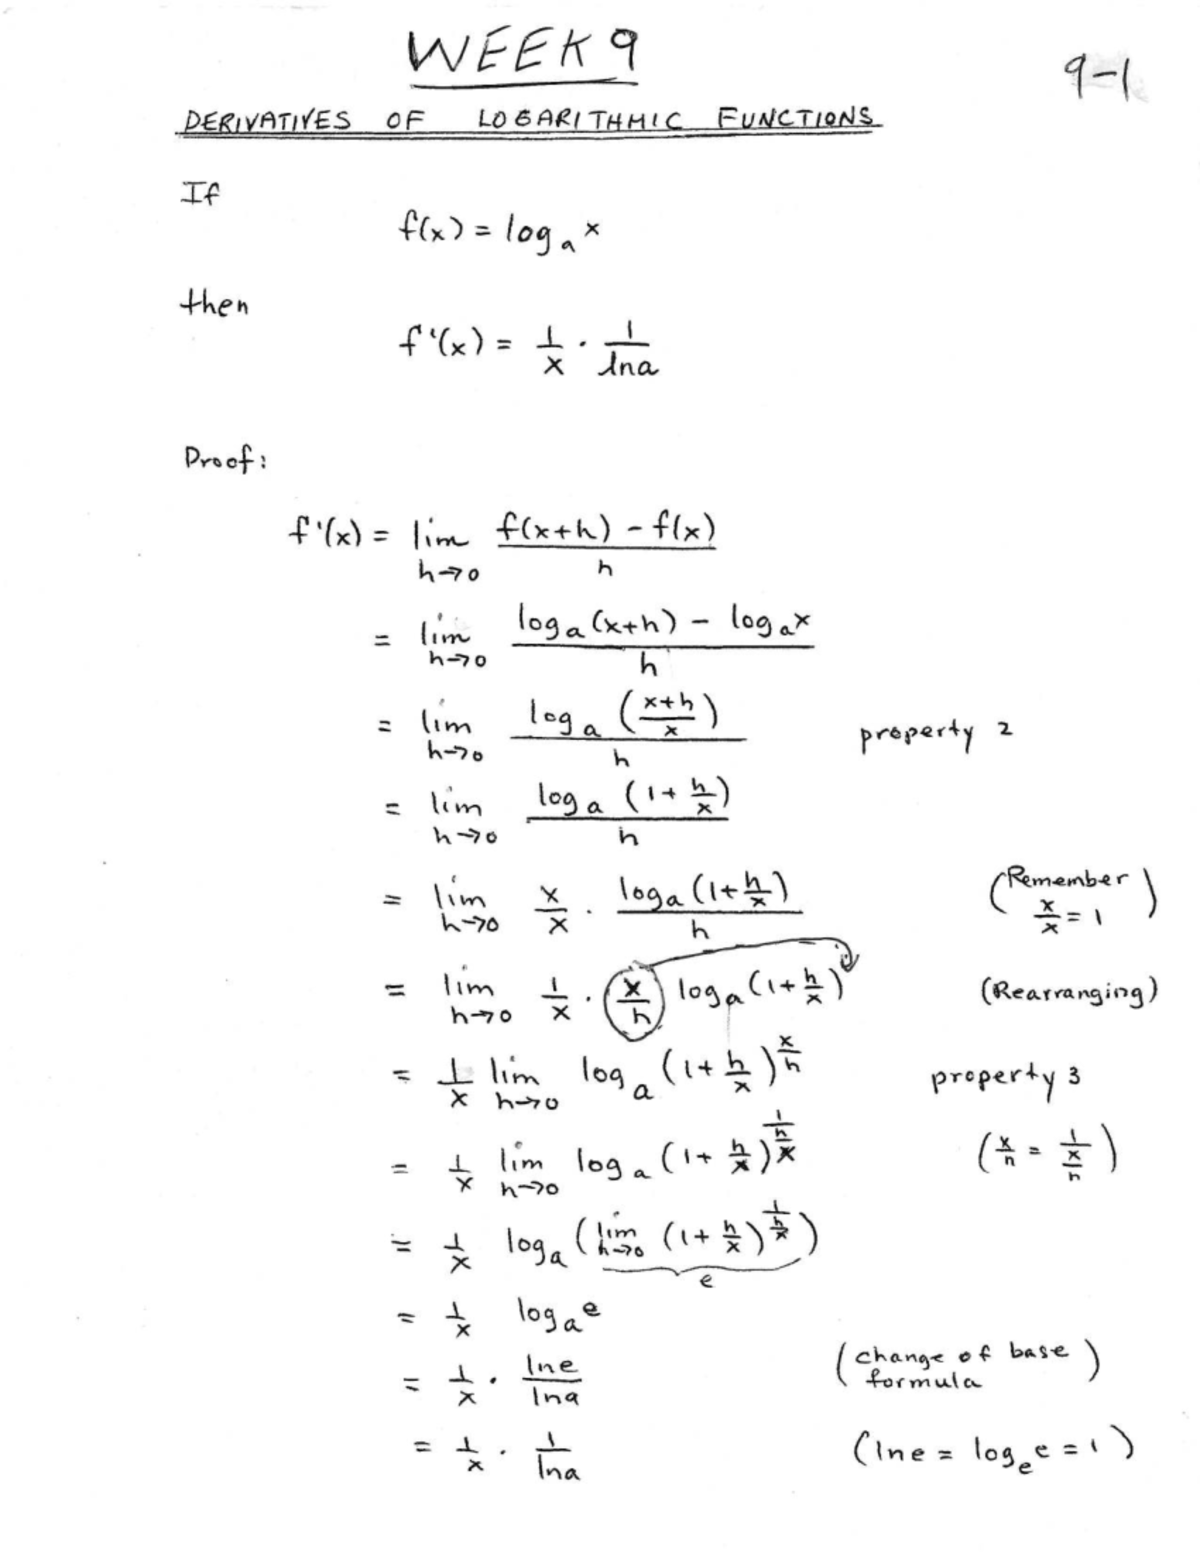 WEEK 9
9-1
DERIVATIVES OF LOGARITHMIC FUNCTIONS
If
f(x) = log_a x
then
f'(x) = 1/x · 1/lna
Proof:
f'(x) = lim_{h→0} (f(x+h) - f(x))/h
= lim_{h→0} (log_a (x+h) - log_a x)/h
= lim_{h→0} (log_a ((x+h)/x))/h property 2
= lim_{h→0} (log_a (1 + h/x))/h
= lim_{h→0} x/x · (log_a (1+h/x))/h (Remember x/x = 1)
= lim_{h→0} 1/x · (x/h) log_a (1+h/x) (Rearranging)
= 1/x lim_{h→0} log_a (1+h/x)^{x/h} property 3
= 1/x lim_{h→0} log_a (1+h/x)^{1/(h/x)} (x/h = 1/(x/h))
= 1/x log_a (lim_{h→0} (1+h/x)^{1/(h/x)})
e
= 1/x log_a e
= 1/x · lne/lna (change of base formula)
= 1/x · 1/lna (lne = log_e e = 1)